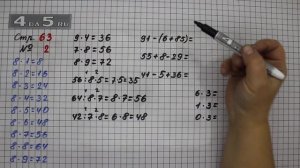 4DA5.RU
Стр. 63
№ 2
8·1=8
8·2=16
8·3=24
8·4=32
8·5=40
8·6=48
8·7=56
8·8=64
8·9=72
9·4=36
7·8=56
8·9=72
1 2
56:8·5=7·5=35
1 2
64:8·7=8·7=56
1 2
42:7·8=6·8=48
91-(6+85)=
55+8-29=
41-5+36=
6·3=
1·3=
0·3=